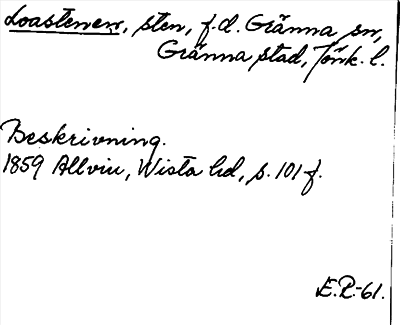 Loastenen, sten, f.d. Gränna sn,
Gränna stad, Jönk. l.
Beskrivning.
1859 Allvin, Wista hd, s. 101 f.
E.R.-61.